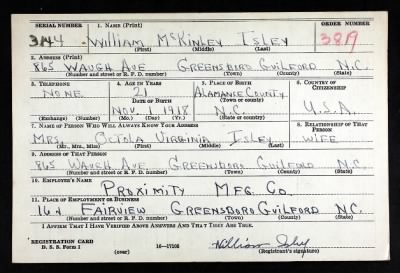 SERIAL NUMBER 1. NAME (Print) ORDER NUMBER
3144 William McKinley Isley 3819
(First) (Middle) (Last)
2. ADDRESS (Print)
865 Waugh Ave Greensboro Guilford N.C.
(Number and street or R. F. D. number) (Town) (County) (State)
3. TELEPHONE 4. AGE IN YEARS 5. PLACE OF BIRTH 6. COUNTRY OF CITIZENSHIP
None 21 Alamance County
DATE OF BIRTH (Town or county)
Nov. 1 1918 N.C. U.S.A.
(Exchange) (Number) (Mo.) (Day) (Yr.) (State or country)
7. NAME OF PERSON WHO WILL ALWAYS KNOW YOUR ADDRESS 8. RELATIONSHIP OF THAT PERSON
Mrs. Virginia Isley Wife
(Mr., Mrs., Miss) (First) (Middle) (Last)
9. ADDRESS OF THAT PERSON
865 Waugh Ave. Greensboro Guilford N.C.
(Number and street or R. F. D. number) (Town) (County) (State)
10. EMPLOYER'S NAME
Proximity Mfg Co.
11. PLACE OF EMPLOYMENT OR BUSINESS
16th Fairview Greensboro Guilford N.C.
(Number and street or R. F. D. number) (Town) (County) (State)
I AFFIRM THAT I HAVE VERIFIED ABOVE ANSWERS AND THAT THEY ARE TRUE.
REGISTRATION CARD
D. S. S. Form 1 (over) 16—17105 William Isley
(Registrant's signature)